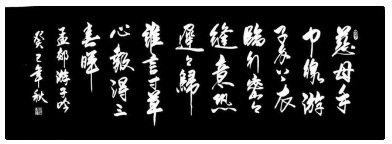 慈母手
中線游
子身上衣
臨行密々
縫意恐
遲々歸
誰言寸草
心報得三
春暉
孟郊游子吟
癸巳年秋